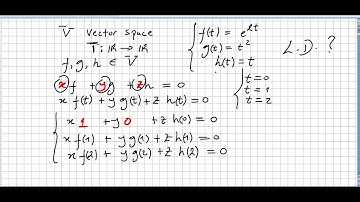 V vector space
T: ℝ → ℝ
f, g, h ∈ V
f(t) = e^{2t}
g(t) = t²
h(t) = t
L.D. ?
xf + yg + zh = 0
x f(t) + y g(t) + z h(t) = 0
t = 0
t = 1
t = 2
x 1 + y 0 + z h(0) = 0
x f(1) + y g(1) + z h(1) = 0
x f(2) + y g(2) + z h(2) = 0